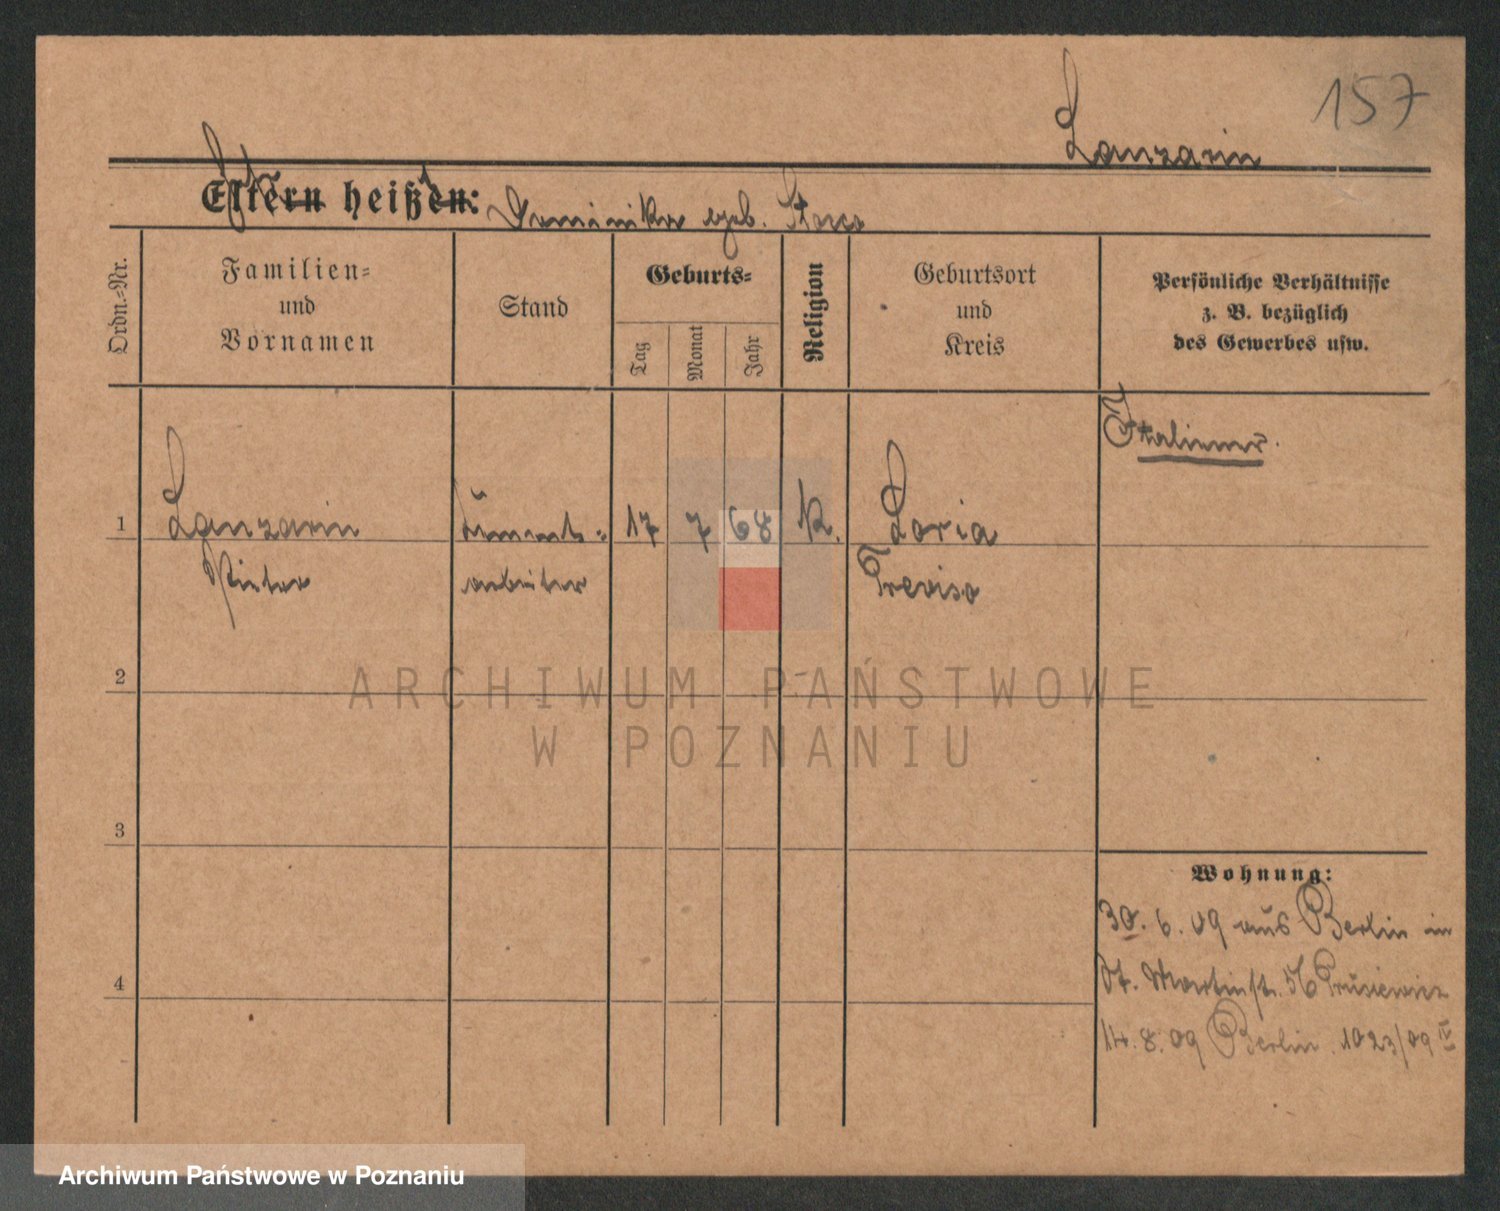 157
Lanzarin
Eltern heißen: Dominika geb. Storco
Ordn.=Nr.
Familien=
und
Vornamen
Stand
Geburts=
Tag
Monat
Jahr
Religion
Geburtsort
und
Kreis
Persönliche Verhältnisse
z. B. bezüglich
des Gewerbes usw.
Italiener.
1
Lanzarin
Pieter
Zements=
arbeiter
17
7
68
K.
Loria
Treviso
2
3
4
Wohnung:
30. 6. 09 aus Berlin in
St. Martinstr. 56 Prusiewicz
14. 8. 09 Berlin. 1023/09 IV
ARCHIWUM PAŃSTWOWE
W POZNANIU
Archiwum Państwowe w Poznaniu